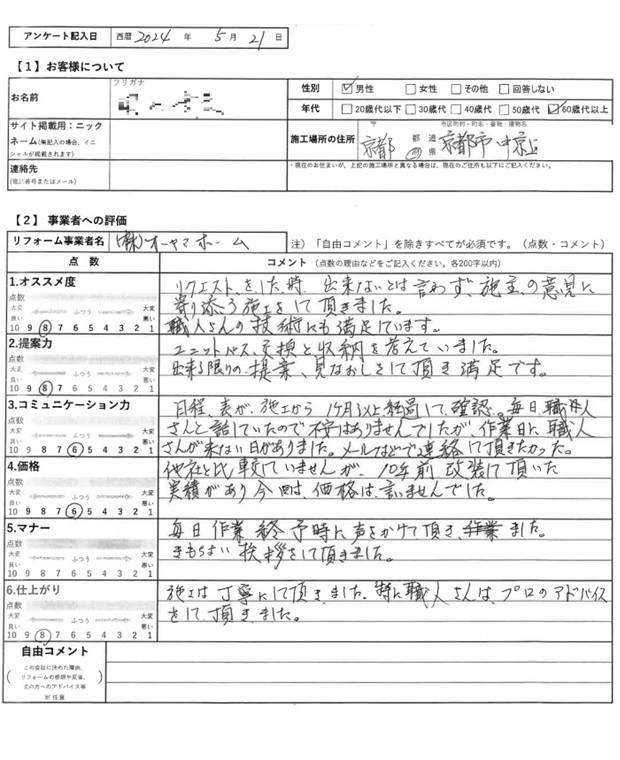 アンケート記入日 西暦 2024 年 5 月 21 日
【1】お客様について
フリガナ
お名前
性別 ☑男性 □女性 □その他 □回答しない
年代 □20歳代以下 □30歳代 □40歳代 □50歳代 ☑60歳代以上
サイト掲載用:ニックネーム(無記入の場合、イニシャルが掲載されます)
施工場所の住所 〒 市区町村・町名・番地・建物名
京都 都 道 府 県 京都市 中京区
*現在のお住まいが、上記の施工場所と異なる場合は、現在のご住所も以下にご記入ください。
連絡先
(電話番号またはメール)
【2】事業者への評価
リフォーム事業者名 (株)オーヤマホーム 注)「自由コメント」を除きすべてが必須です。(点数・コメント)
点 数 コメント(点数の理由などをご記入ください。各200字以内)
1.オススメ度
点数
大変 ふつう 大変
良い 悪い
10 9 8 7 6 5 4 3 2 1
リクエストをした時、出来ないとは言わず、施主の意見に
寄り添う施工をして頂きました。
職人さんの技術にも満足しています。
2.提案力
点数
大変 ふつう 大変
良い 悪い
10 9 8 7 6 5 4 3 2 1
ユニットバス、交換と収納を考えていました。
出来る限りの、提案、見なおしをして頂き満足です。
3.コミュニケーション力
点数
大変 ふつう 大変
良い 悪い
10 9 8 7 6 5 4 3 2 1
日程、表が、施工から 1ヶ月以上経過して、確認。毎日、職人
さんと話していたので不安はありませんでしたが、作業日に職人
さんが来ない日がありました。メールなどで連絡して頂きたかった。
4.価格
点数
大変 ふつう 大変
良い 悪い
10 9 8 7 6 5 4 3 2 1
他社と比較していませんが、10年前改装して頂いた
実績があり今回は、価格は、言いませんでした。
5.マナー
点数
大変 ふつう 大変
良い 悪い
10 9 8 7 6 5 4 3 2 1
毎日作業終予時に声をかけて頂き、ました。
きもちよい挨拶をして頂きました。
6.仕上がり
点数
大変 ふつう 大変
良い 悪い
10 9 8 7 6 5 4 3 2 1
施工は丁寧にして頂きました。特に職人さんは、プロのアドバイス
をして、頂きました。
自由コメント
(この会社に決めた理由、
リフォームの感想や反省、
次の方へのアドバイス等)
※任意